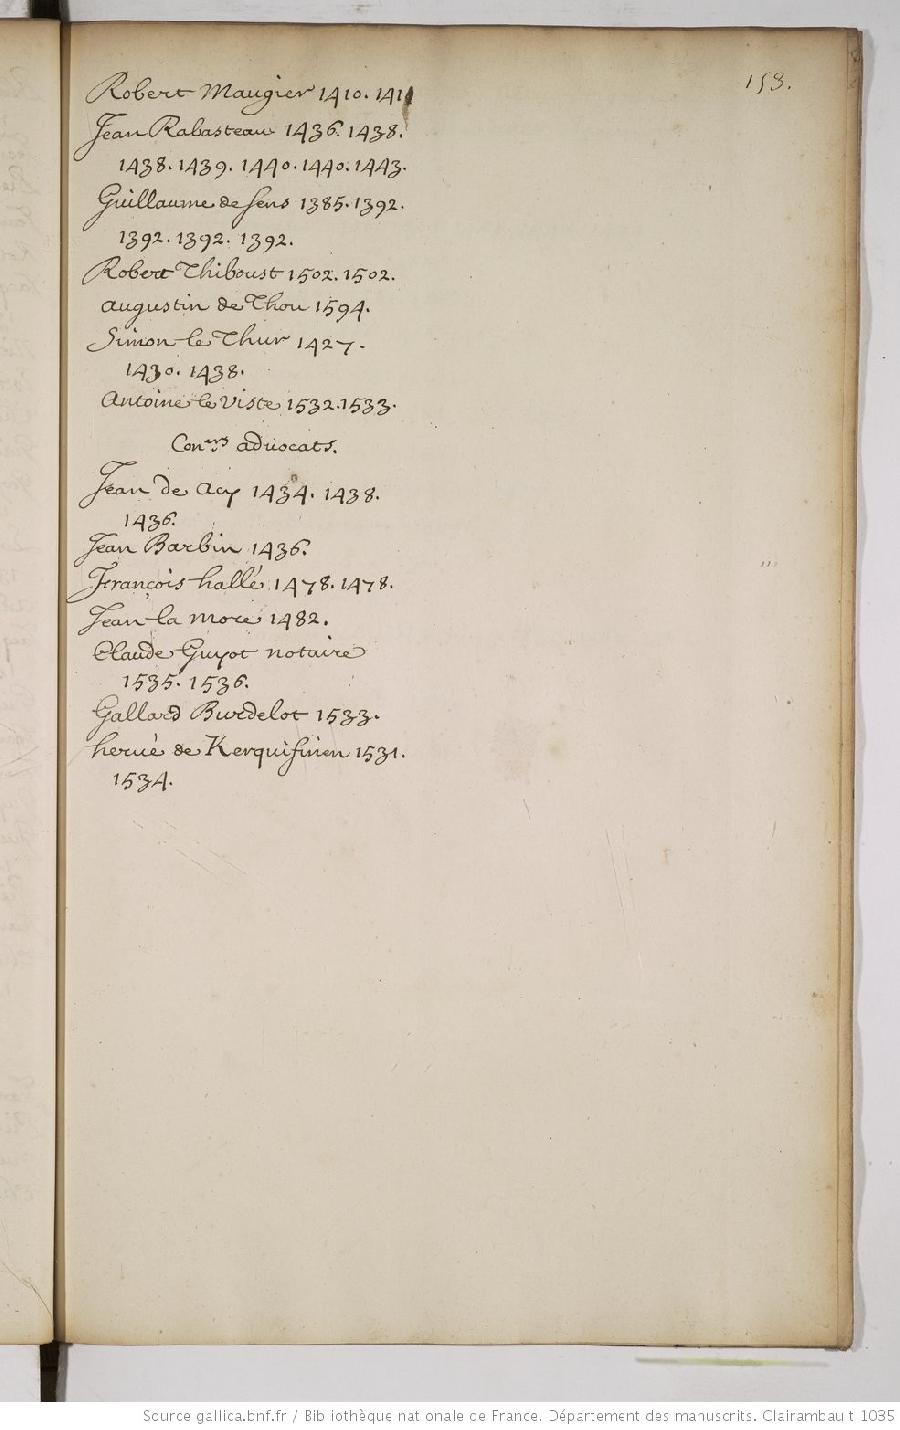 158.
Robert Maugier 1410. 1411
Jean Rabasteau 1436. 1438.
1438. 1439. 1440. 1440. 1443.
Guillaume de Sens 1385. 1392.
1392. 1392. 1392.
Robert Thiboust 1502. 1502.
augustin de Thou 1594.
Simon le Thur 1427.
1430. 1438.
Antoine le viste 1532. 1533.
Con.rs advocats.
Jean de acy 1434. 1438.
1436.
Jean Barbin 1436.
François hallé 1478. 1478.
Jean la more 1482.
Claude Guyot notaire
1535. 1536.
Gallard Burdelot 1533.
herué de Kerquifinen 1531.
1534.
Source gallica.bnf.fr / Bibliothèque nationale de France. Département des manuscrits. Clairambault 1035